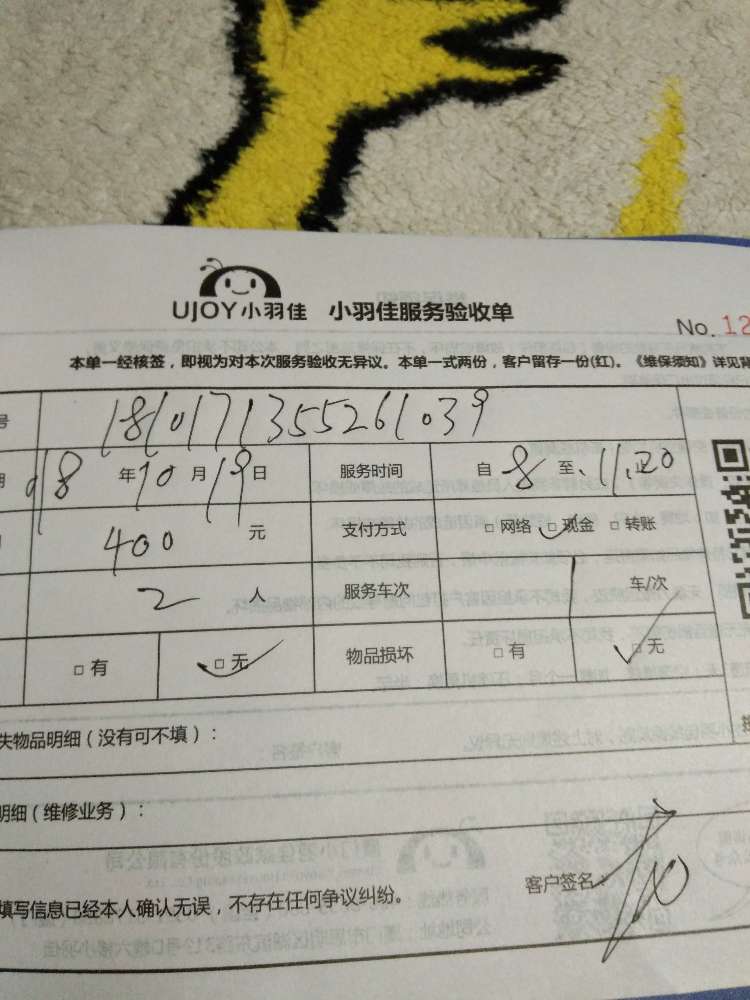 UJOY小羽佳 小羽佳服务验收单
No. 12
本单一经核签，即视为对本次服务验收无异议。本单一式两份，客户留存一份(红)。《维保须知》详见背
号 1810171355261039
期 18 年 10 月 19 日 服务时间 自 8 至 11.20 止
400 元 支付方式 □ 网络 □ 现金 □ 转账
2 人 服务车次 1 车/次
□ 有 □ 无 物品损坏 □ 有 □ 无
失物品明细（没有可不填）：
明细（维修业务）：
客户签名：
填写信息已经本人确认无误，不存在任何争议纠纷。